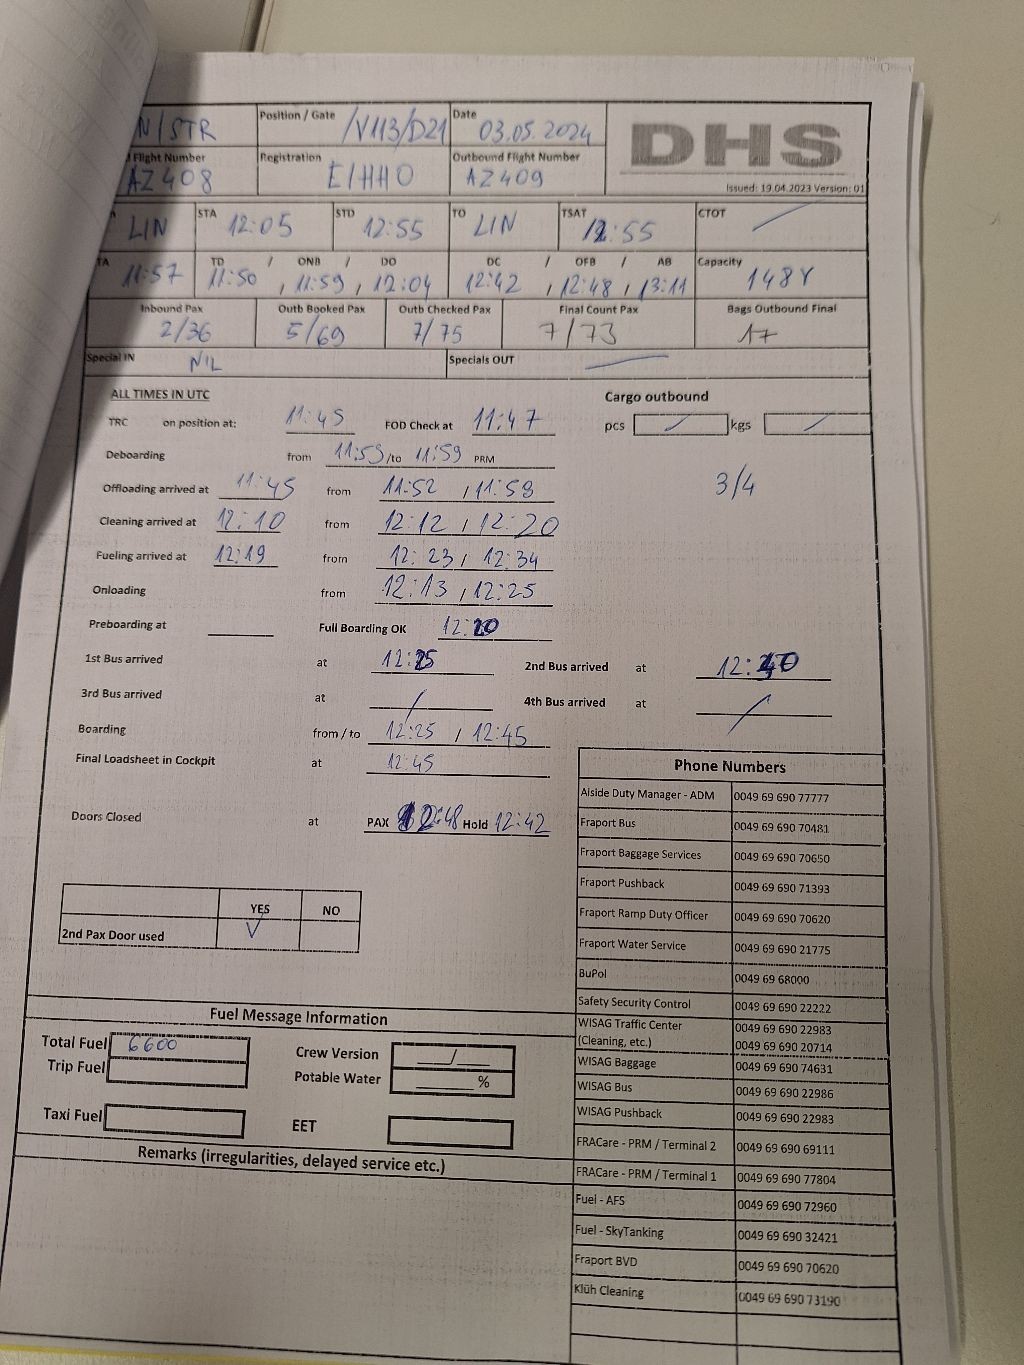 N/STR Position / Gate /V113/D21 Date 03.05.2024 DHS
Flight Number AZ408 Registration EIHHO Outbound Flight Number AZ409 Issued: 19.04.2023 Version: 01
LIN STA 12:05 STD 12:55 TO LIN TSAT 12:55 CTOT /
TA 11:57 TD / ONB / DO 11:50 , 11:59 , 12:04 DC / OFB / AB 12:42 , 12:48 , 13:11 Capacity 148Y
Inbound Pax 2/36 Outb Booked Pax 5/69 Outb Checked Pax 7/75 Final Count Pax 7/73 Bags Outbound Final 17
Special IN NIL Specials OUT
ALL TIMES IN UTC Cargo outbound
TRC on position at: 11:45 FOD Check at 11:47 pcs / kgs /
Deboarding from 11:53 /to 11:59 PRM
Offloading arrived at 11:45 from 11:52 , 11:58 3/4
Cleaning arrived at 12:10 from 12:12 , 12:20
Fueling arrived at 12:19 from 12:23 , 12:34
Onloading from 12:13 , 12:25
Preboarding at Full Boarding OK 12:20
1st Bus arrived at 12:25 2nd Bus arrived at 12:40
3rd Bus arrived at / 4th Bus arrived at /
Boarding from / to 12:25 , 12:45
Final Loadsheet in Cockpit at 12:45
Doors Closed at PAX 12:48 Hold 12:42
YES NO
2nd Pax Door used V
Phone Numbers
Aiside Duty Manager - ADM 0049 69 690 77777
Fraport Bus 0049 69 690 70481
Fraport Baggage Services 0049 69 690 70650
Fraport Pushback 0049 69 690 71393
Fraport Ramp Duty Officer 0049 69 690 70620
Fraport Water Service 0049 69 690 21775
BuPol 0049 69 68000
Safety Security Control 0049 69 690 22222
WISAG Traffic Center 0049 69 690 22983
(Cleaning, etc.) 0049 69 690 20714
WISAG Baggage 0049 69 690 74631
WISAG Bus 0049 69 690 22986
WISAG Pushback 0049 69 690 22983
FRACare - PRM / Terminal 2 0049 69 690 69111
FRACare - PRM / Terminal 1 0049 69 690 77804
Fuel - AFS 0049 69 690 72960
Fuel - SkyTanking 0049 69 690 32421
Fraport BVD 0049 69 690 70620
Klüh Cleaning 0049 69 690 73190
Fuel Message Information
Total Fuel 6600 Crew Version /
Trip Fuel Potable Water %
Taxi Fuel EET
Remarks (irregularities, delayed service etc.)